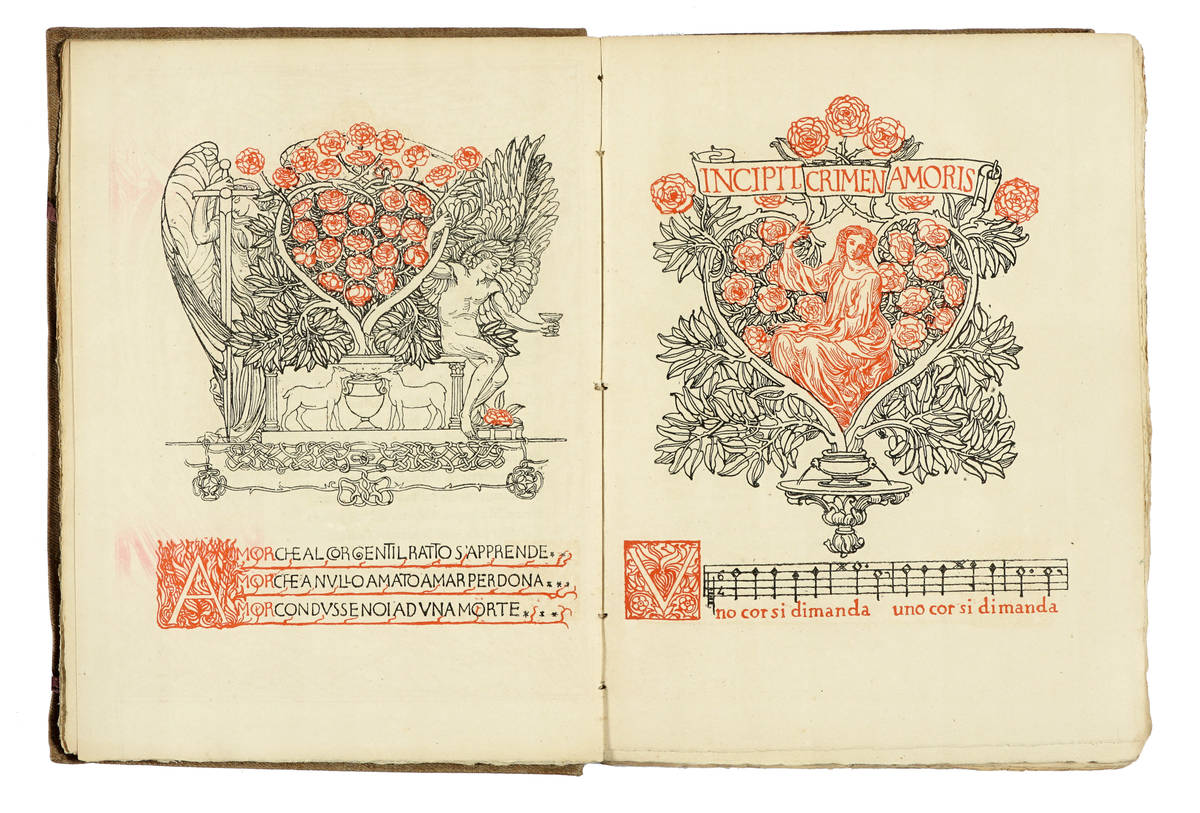 AMOR CHE AL COR GENTIL RATTO S'APPRENDE
AMOR CHE A NVLLO AMATO AMAR PERDONA
AMOR CONDVSSE NOI AD VNA MORTE
INCIPIT CRIMEN AMORIS
6 4
Vno cor si dimanda uno cor si dimanda